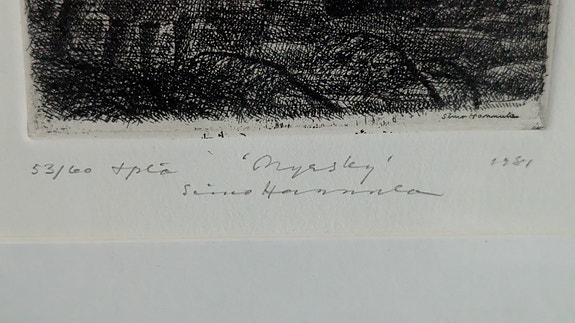 Simo Hannula
53/60 tpla 'Myrsky' 1981
Simo Hannula